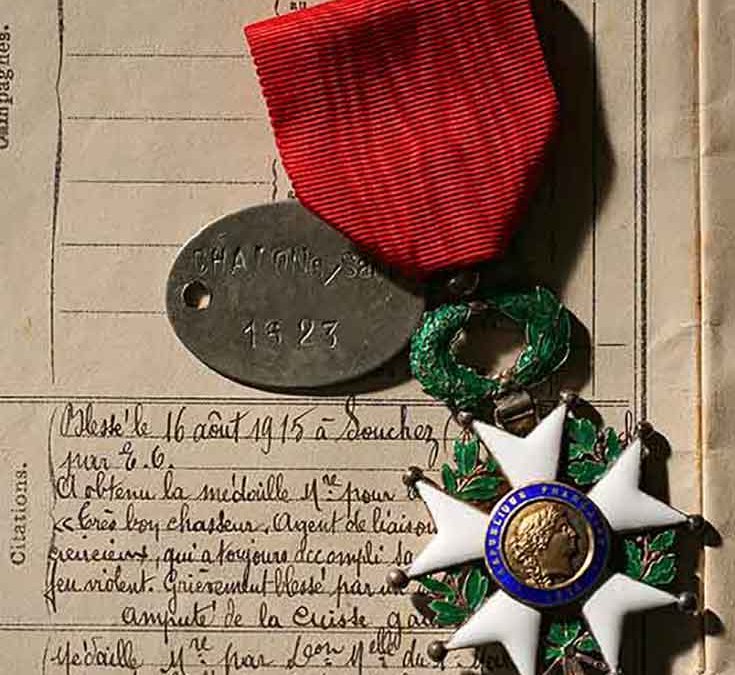 au
Campagnes.
CHALON s/Sa
1323
Citations.
Blessé le 16 août 1915 à Souchez (
par E.O.
A obtenu la médaille Mre pour
"Très bon chasseur. Agent de liaison
qui a toujours accompli sa
feu violent. Grièvement blessé par un
amputé de la cuisse gau
Médaille Mre par Don Melle du
REPUBLIQUE FRANCAISE